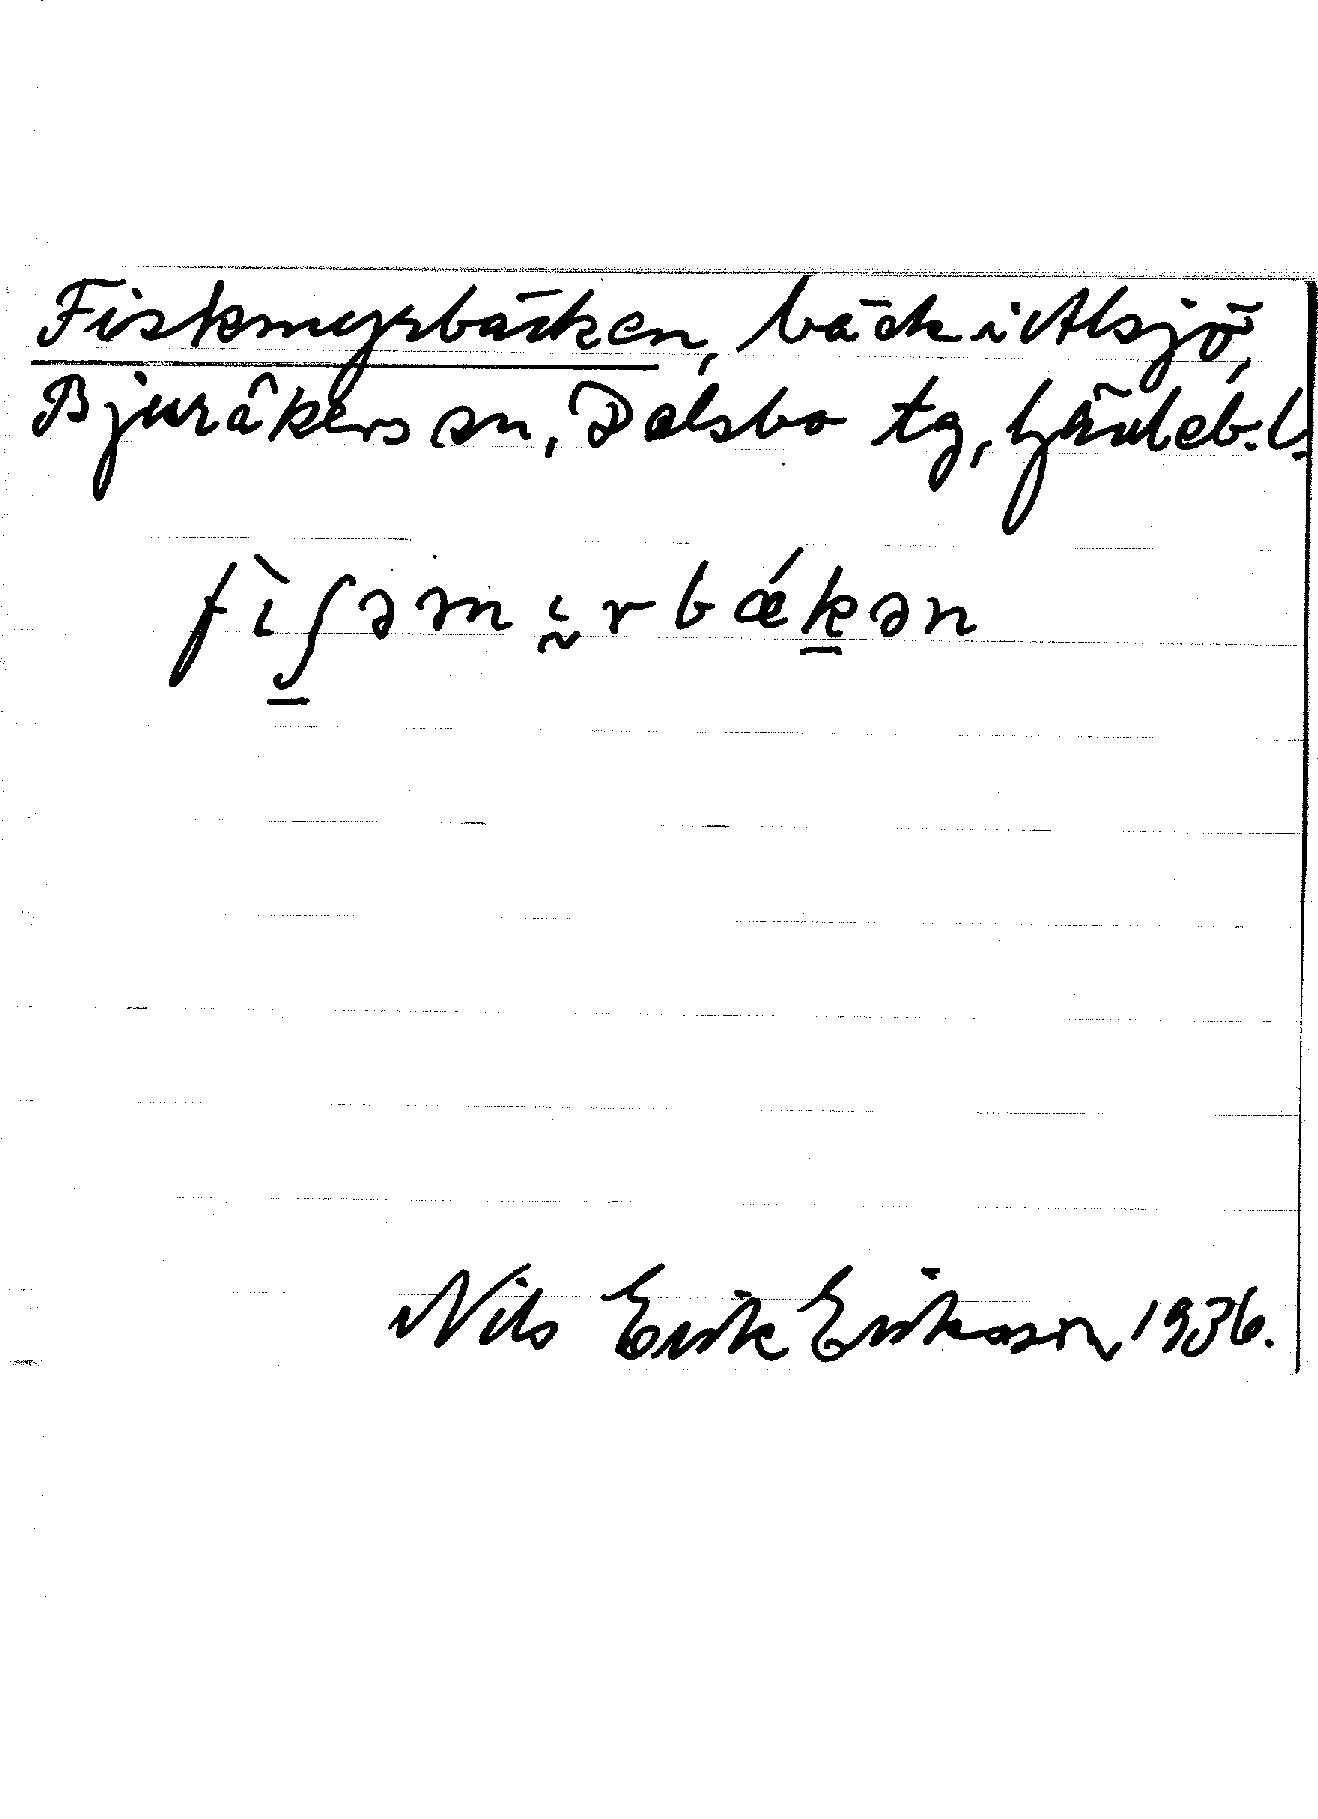 Fiskmyrbäcken, bäck i Alsjö,
Bjuråkers sn, Delsbo tg, Gävleb. l.
fìʃəmırbǽkən
Nils Erik Eriksson, 1936.